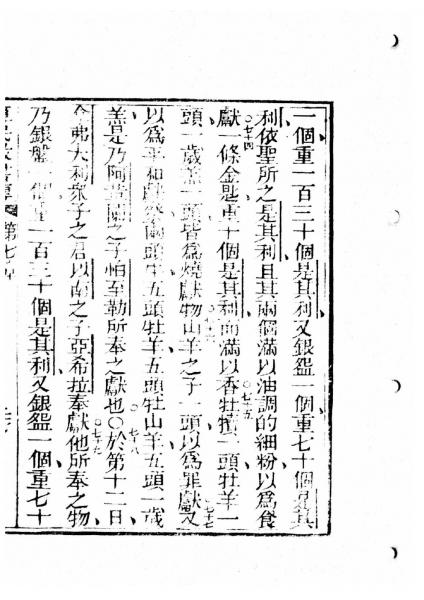 一個重一百三十個是其利又銀盌一個重七十個是其
利依聖所之是其利且其兩個滿以油調的細粉以爲食
○七十四
獻一條金匙重十個是其利而滿以香牡犢一頭牡羊一
○七十五
頭一歲羔一頭皆爲燒獻物山羊之子一頭以爲罪獻又
七十七
以爲平和獻祭兩頭牛五頭牡羊五頭牡山羊五頭一歲
○七十八
羔是乃阿革蘭之子帕至勒所奉之獻也○於第十二日
拿弗大利衆子之君以南之子亞希拉奉獻他所奉之物
○七十九
乃銀盤一個重一百三十個是其利又銀盌一個重七十
第七章